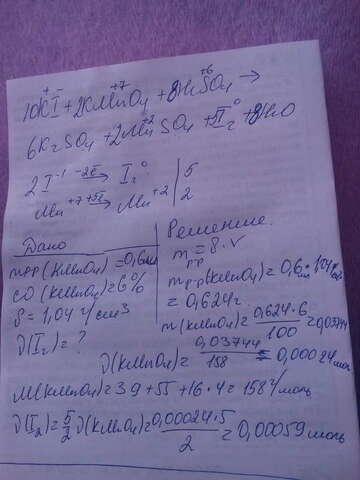 10KI + 2KMnO₄ + 8H₂SO₄ →
6K₂SO₄ + 2MnSO₄ + 5I₂⁰ + 8H₂O
2I⁻¹ -2ē→ I₂⁰ | 5
Mn⁺⁷ +5ē→ Mn⁺² | 2
Дано
mр-р(KMnO₄) = 0,6мл
ω(KMnO₄) = 6%
ρ = 1,04 г/см3
ν(I₂) = ?
Решение.
mр-р = ρ·V
mр-р(KMnO₄) = 0,6мл · 1,04
= 0,624г.
m(KMnO₄) = 0,624·6/100 = 0,03744
ν(KMnO₄) = 0,03744/158 = 0,00024моль
M(KMnO₄) = 39 + 55 + 16·4 = 158г/моль
ν(I₂) = 5/2 ν(KMnO₄) = 0,00024·5/2 = 0,00059моль